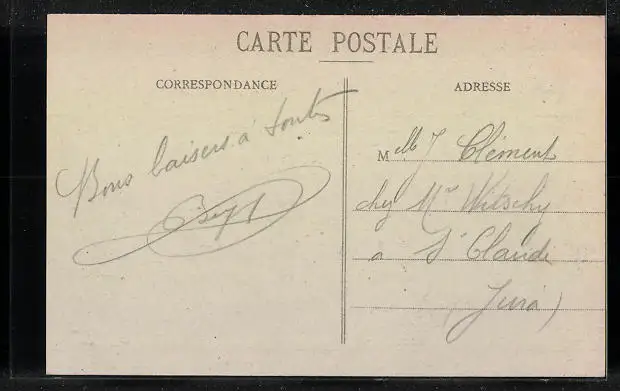 CARTE POSTALE
CORRESPONDANCE
ADRESSE
Bons baisers à toutes
Melle J Clément
chez Mr Witschy
a St Claude
Jura)